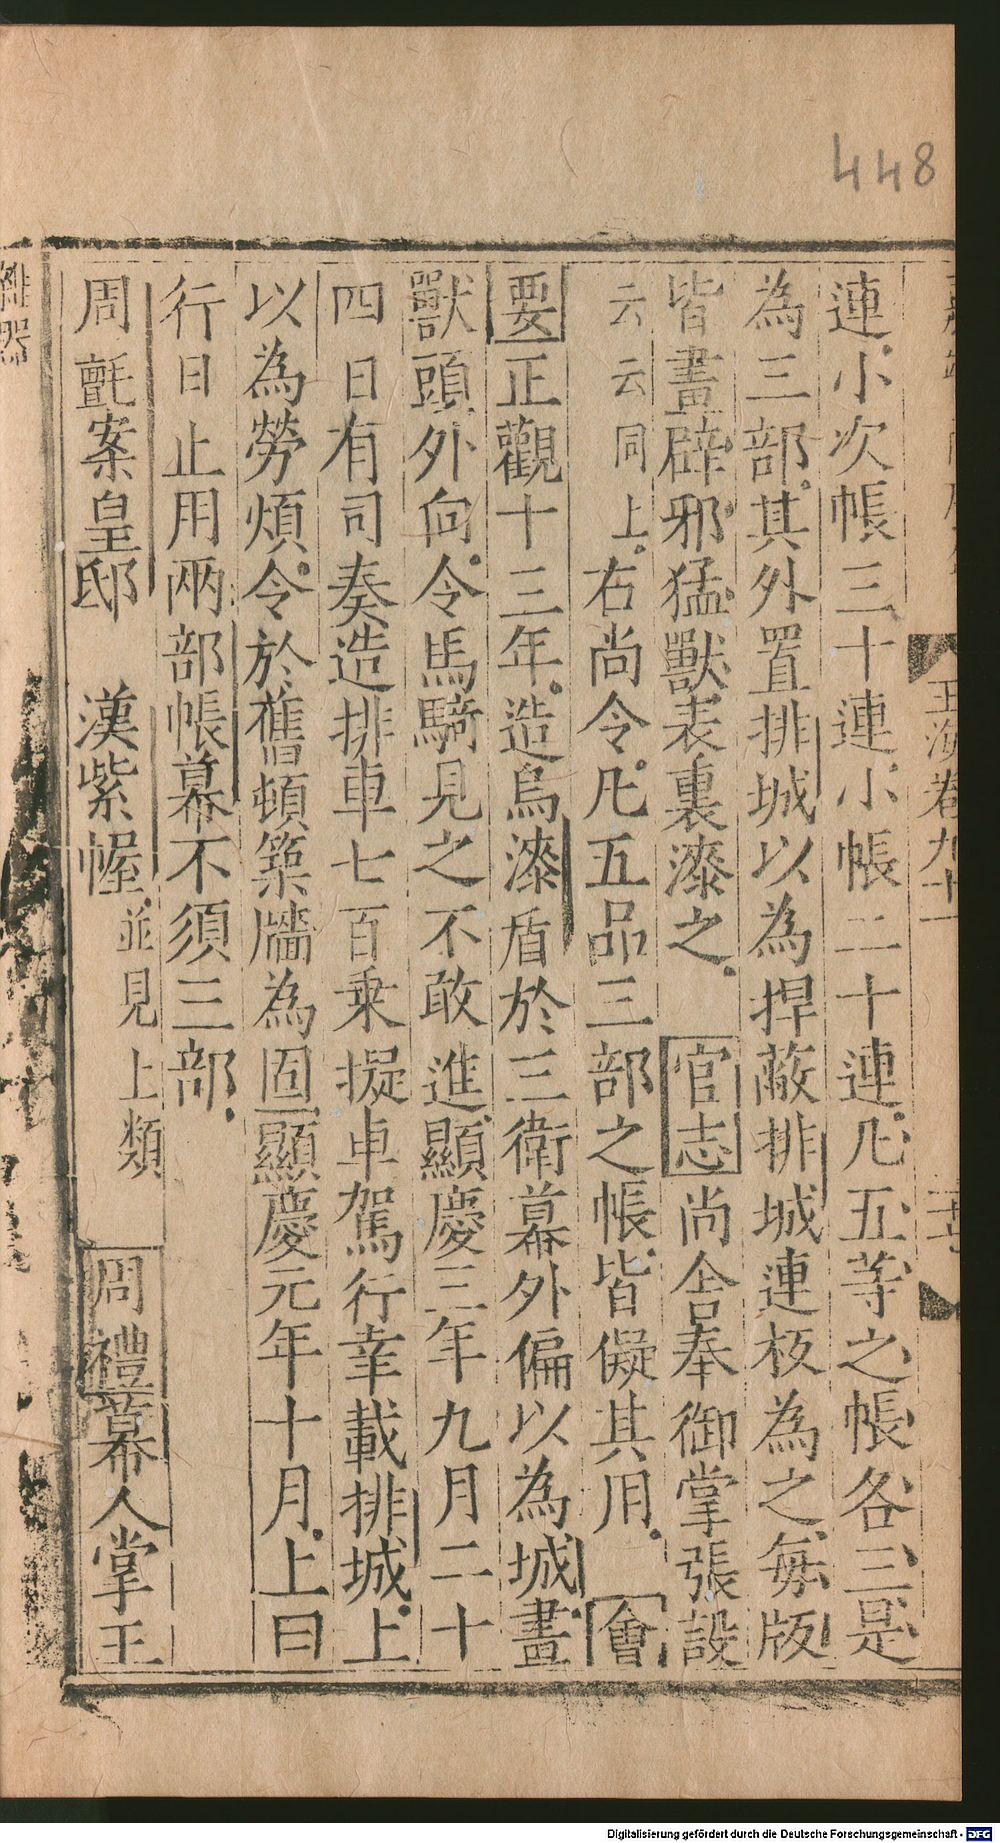 448
玉海卷九十一
連小次帳三十連小帳二十連凡五等之帳各三是
為三部其外置排城以為捍蔽排城連板為之每版
皆畫辟邪猛獸表裏漆之 官志尚舍奉御掌張設
云云同上右尚令凡五品三部之帳皆儗其用 會
要正觀十三年造烏漆盾於三衛幕外偏以為城畫
獸頭外向令馬騎見之不敢進顯慶三年九月二十
四日有司奏造排車七百乗擬車駕行幸載排城上
以為勞煩令於舊頓築牆為固顯慶元年十月上曰
行日止用兩部帳幕不須三部
周氈案皇邸 漢紫幄並見上類 周禮幕人掌王
Digitalisierung gefördert durch die Deutsche Forschungsgemeinschaft - DFG